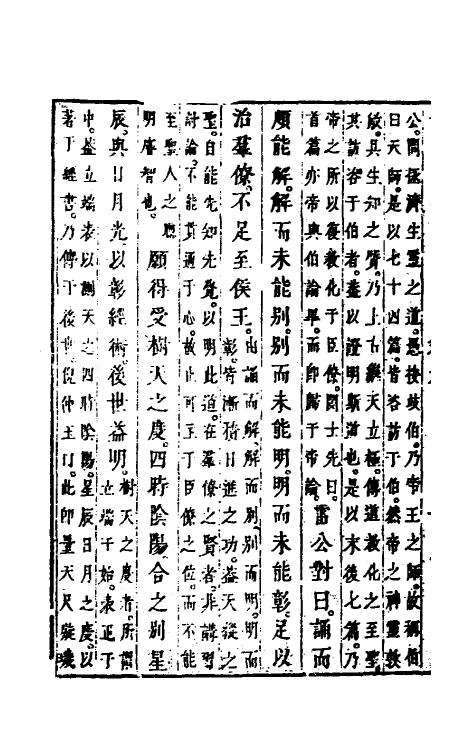 公問拯濟生靈之道。愚按岐伯乃帝王之師。故稱伯
曰天師。是以七十四篇。皆咨訪于伯。然帝之神靈敦
敏。具生知之質。乃上古繼天立極。傳道教化之至聖。
其訪咨于伯者。蓋以證明斯道也。是以末後七篇。乃
帝之所以復教化于臣僚。閔士先曰。
首篇亦帝與伯論畢。而即歸于帝論。
雷公對曰。誦而
頗能解。解而未能別。別而未能明。明而未能彰。足以
治羣僚。不足至侯王。
由誦而解。解而別。別而明。明而
彰。皆漸積日進之功。蓋天縱之
聖。自能先知先覺。以明此道。在羣僚之賢者。非講習
討論。不能貫通于心。故止可至于臣僚之位。而不能
至聖人之聰
明睿智也。
願得受樹天之度四時陰陽合之別星
辰與日月光以彰經術後世益明。
樹天之度者。所謂
立端于始。表正于
中。蓋立端表以測天之四時陰陽。星辰日月之度。以
著于經書。乃傳于後世。倪仲玉曰。此即量天尺璇璣